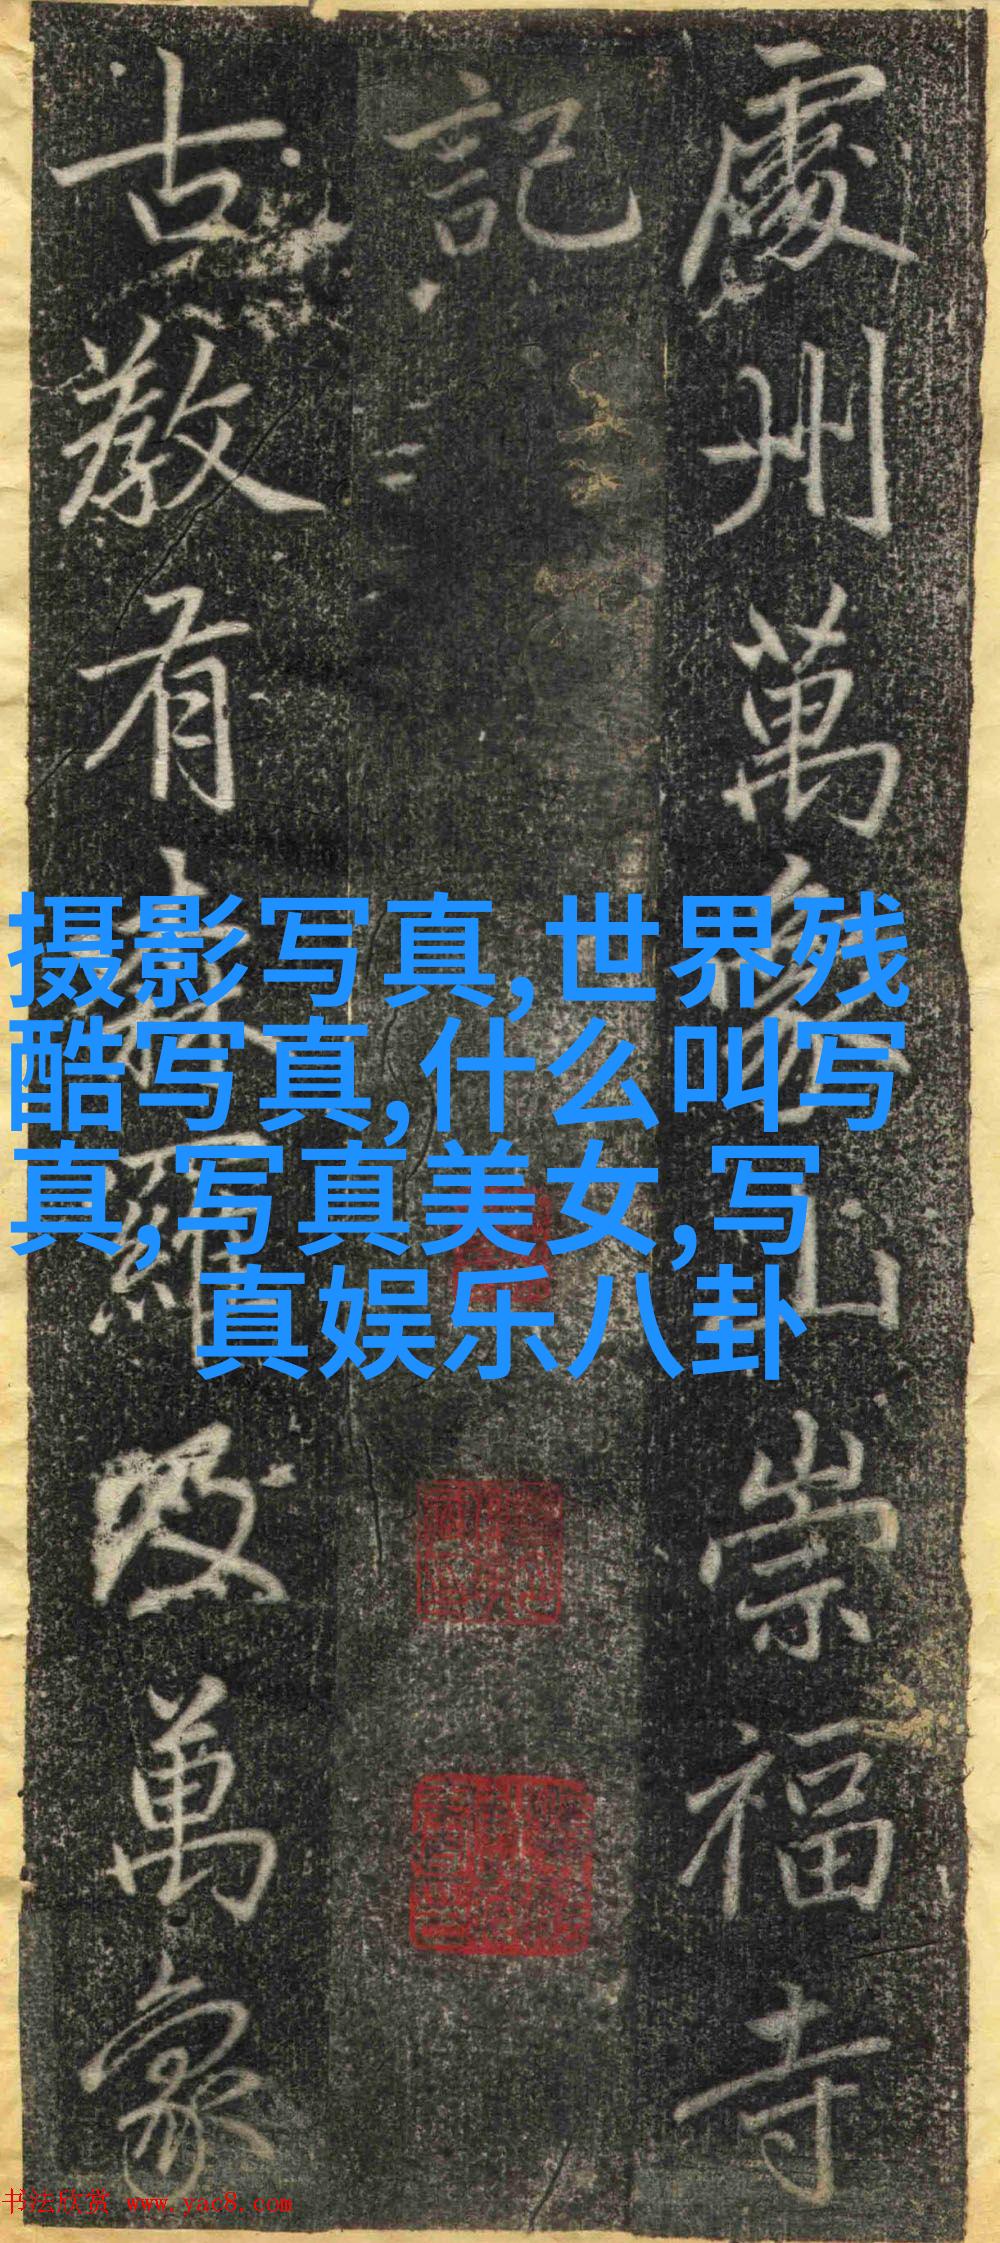 處州萬象山崇福寺
記
古教有森羅及萬象
摄影写真,世界残
酷写真,什么叫写
真,写真美女,写
真娱乐八卦
书法欣赏 www.yac8.com